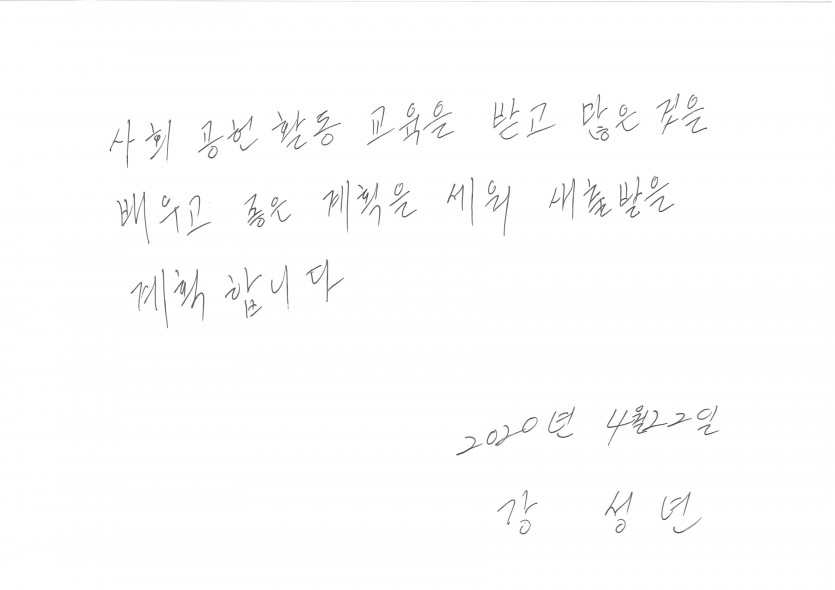 사회 공헌 활동 교육을 받고 많은 것을
배우고 좋은 계획을 세워 새출발을
계획 합니다
2020년 4월22일
강 성 년